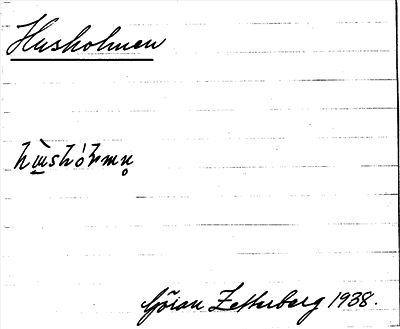 Husholmen
hùshólmn̥
Göran Zetterberg 1938.